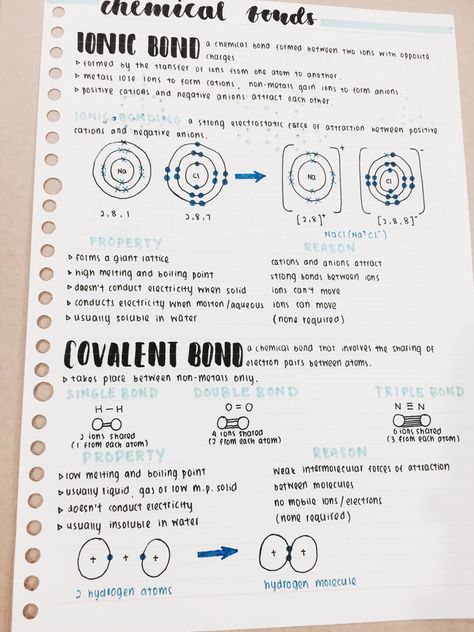 chemical bonds
IONIC BOND a chemical bond formed between two ions with opposite
charges
▹ formed by the transfer of ions from one atom to another.
▹ metals lose ions to form cations, non-metals gain ions to form anions.
▹ positive cations and negative anions attract each other.
IONIC BONDING a strong electrostatic force of attraction between positive
cations and negative anions.
Na Cl → [Na]⁺ [Cl]⁻
2,8,1 2,8,7 [2,8]⁺ [2,8,8]⁻
NaCl (Na⁺Cl⁻)
PROPERTY REASON
▹ forms a giant lattice cations and anions attract
▹ high melting and boiling point strong bonds between ions
▹ doesn't conduct electricity when solid ions can't move
▹ conducts electricity when molton/aqueous ions can move
▹ usually soluble in water (none required)
COVALENT BOND a chemical bond that involves the sharing of
electron pairs between atoms.
▹ takes place between non-metals only.
SINGLE BOND DOUBLE BOND TRIPLE BOND
H–H O=O N≡N
2 ions shared 4 ions shared 6 ions shared
(1 from each atom) (2 from each atom) (3 from each atom)
PROPERTY REASON
▹ low melting and boiling point weak intermolecular forces of attraction
▹ usually liquid, gas or low m.p. solid between molecules
▹ doesn't conduct electricity no mobile ions/electrons
▹ usually insoluble in water (none required)
+ + → + +
2 hydrogen atoms hydrogen molecule